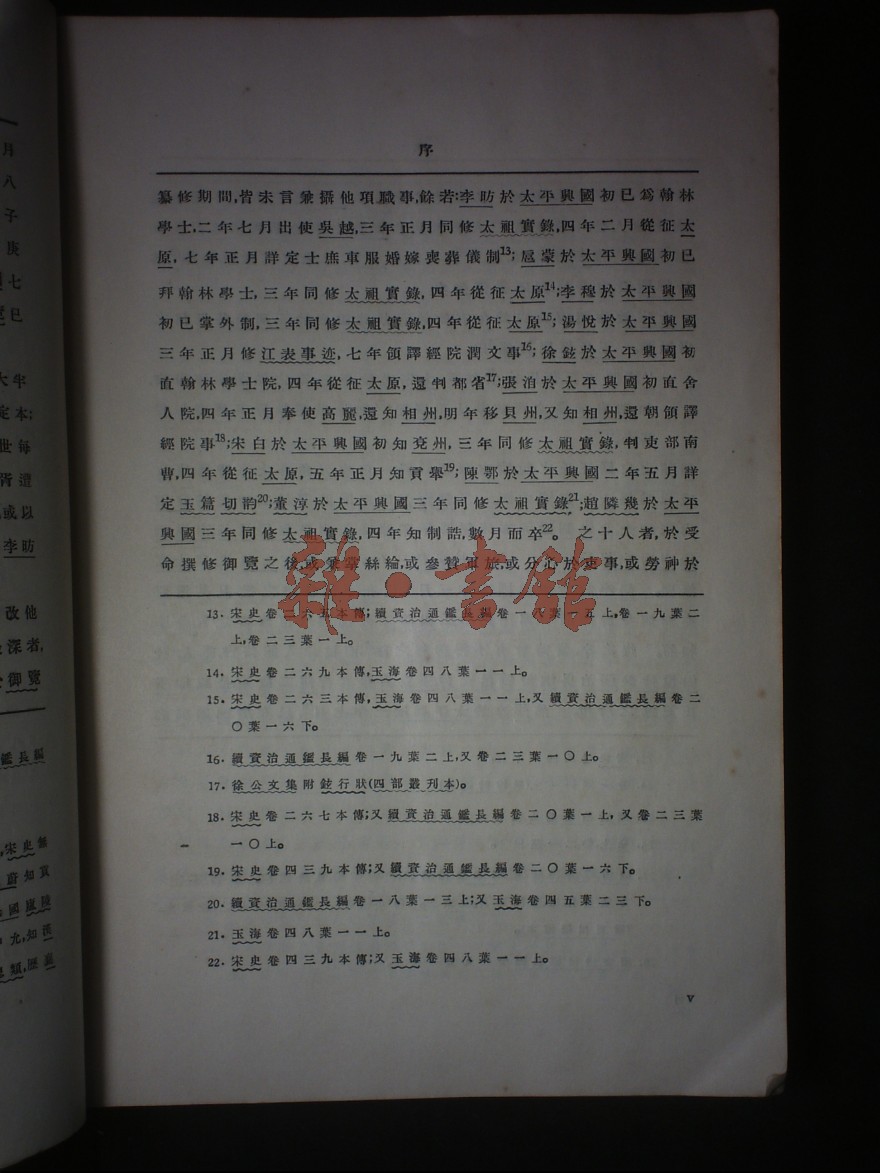 序
纂修期間,皆未言兼攝他項職事,餘若:李昉於太平興國初已爲翰林
學士,二年七月出使吳越,三年正月同修太祖實錄,四年二月從征太
原,七年正月詳定士庶車服婚嫁喪葬儀制13;扈蒙於太平興國初已
拜翰林學士,三年同修太祖實錄,四年從征太原14;李穆於太平興國
初已掌外制,三年同修太祖實錄,四年從征太原15;湯悅於太平興國
三年正月修江表事迹,七年領譯經院潤文事16;徐鉉於太平興國初
直翰林學士院,四年從征太原,還判都省17;張洎於太平興國初直舍
人院,四年正月奉使高麗,還知相州,明年移貝州,又知相州,還朝領譯
經院事18;宋白於太平興國初知兗州,三年同修太祖實錄,判吏部南
曹,四年從征太原,五年正月知貢舉19;陳鄂於太平興國二年五月詳
定玉篇切韵20;董淳於太平興國三年同修太祖實錄21;趙隣幾於太平
興國三年同修太祖實錄,四年知制誥,數月而卒22。之十人者,於受
命撰修御覽之後,或兼掌絲綸,或參贊軍旅,或分心於吏事,或勞神於
13. 宋史卷二六五本傳;續資治通鑑長編卷一八葉一五上,卷一九葉二
上,卷二三葉一上。
14. 宋史卷二六九本傳,玉海卷四八葉一一上。
15. 宋史卷二六三本傳,玉海卷四八葉一一上,又續資治通鑑長編卷二
〇葉一六下。
16. 續資治通鑑長編卷一九葉二上,又卷二三葉一〇上。
17. 徐公文集附鉉行狀(四部叢刊本)。
18. 宋史卷二六七本傳;又續資治通鑑長編卷二〇葉一上,又卷二三葉
一〇上。
19. 宋史卷四三九本傳;又續資治通鑑長編卷二〇葉一六下。
20. 續資治通鑑長編卷一八葉一三上;又玉海卷四五葉二三下。
21. 玉海卷四八葉一一上。
22. 宋史卷四三九本傳;又玉海卷四八葉一一上。
v
雜·書館